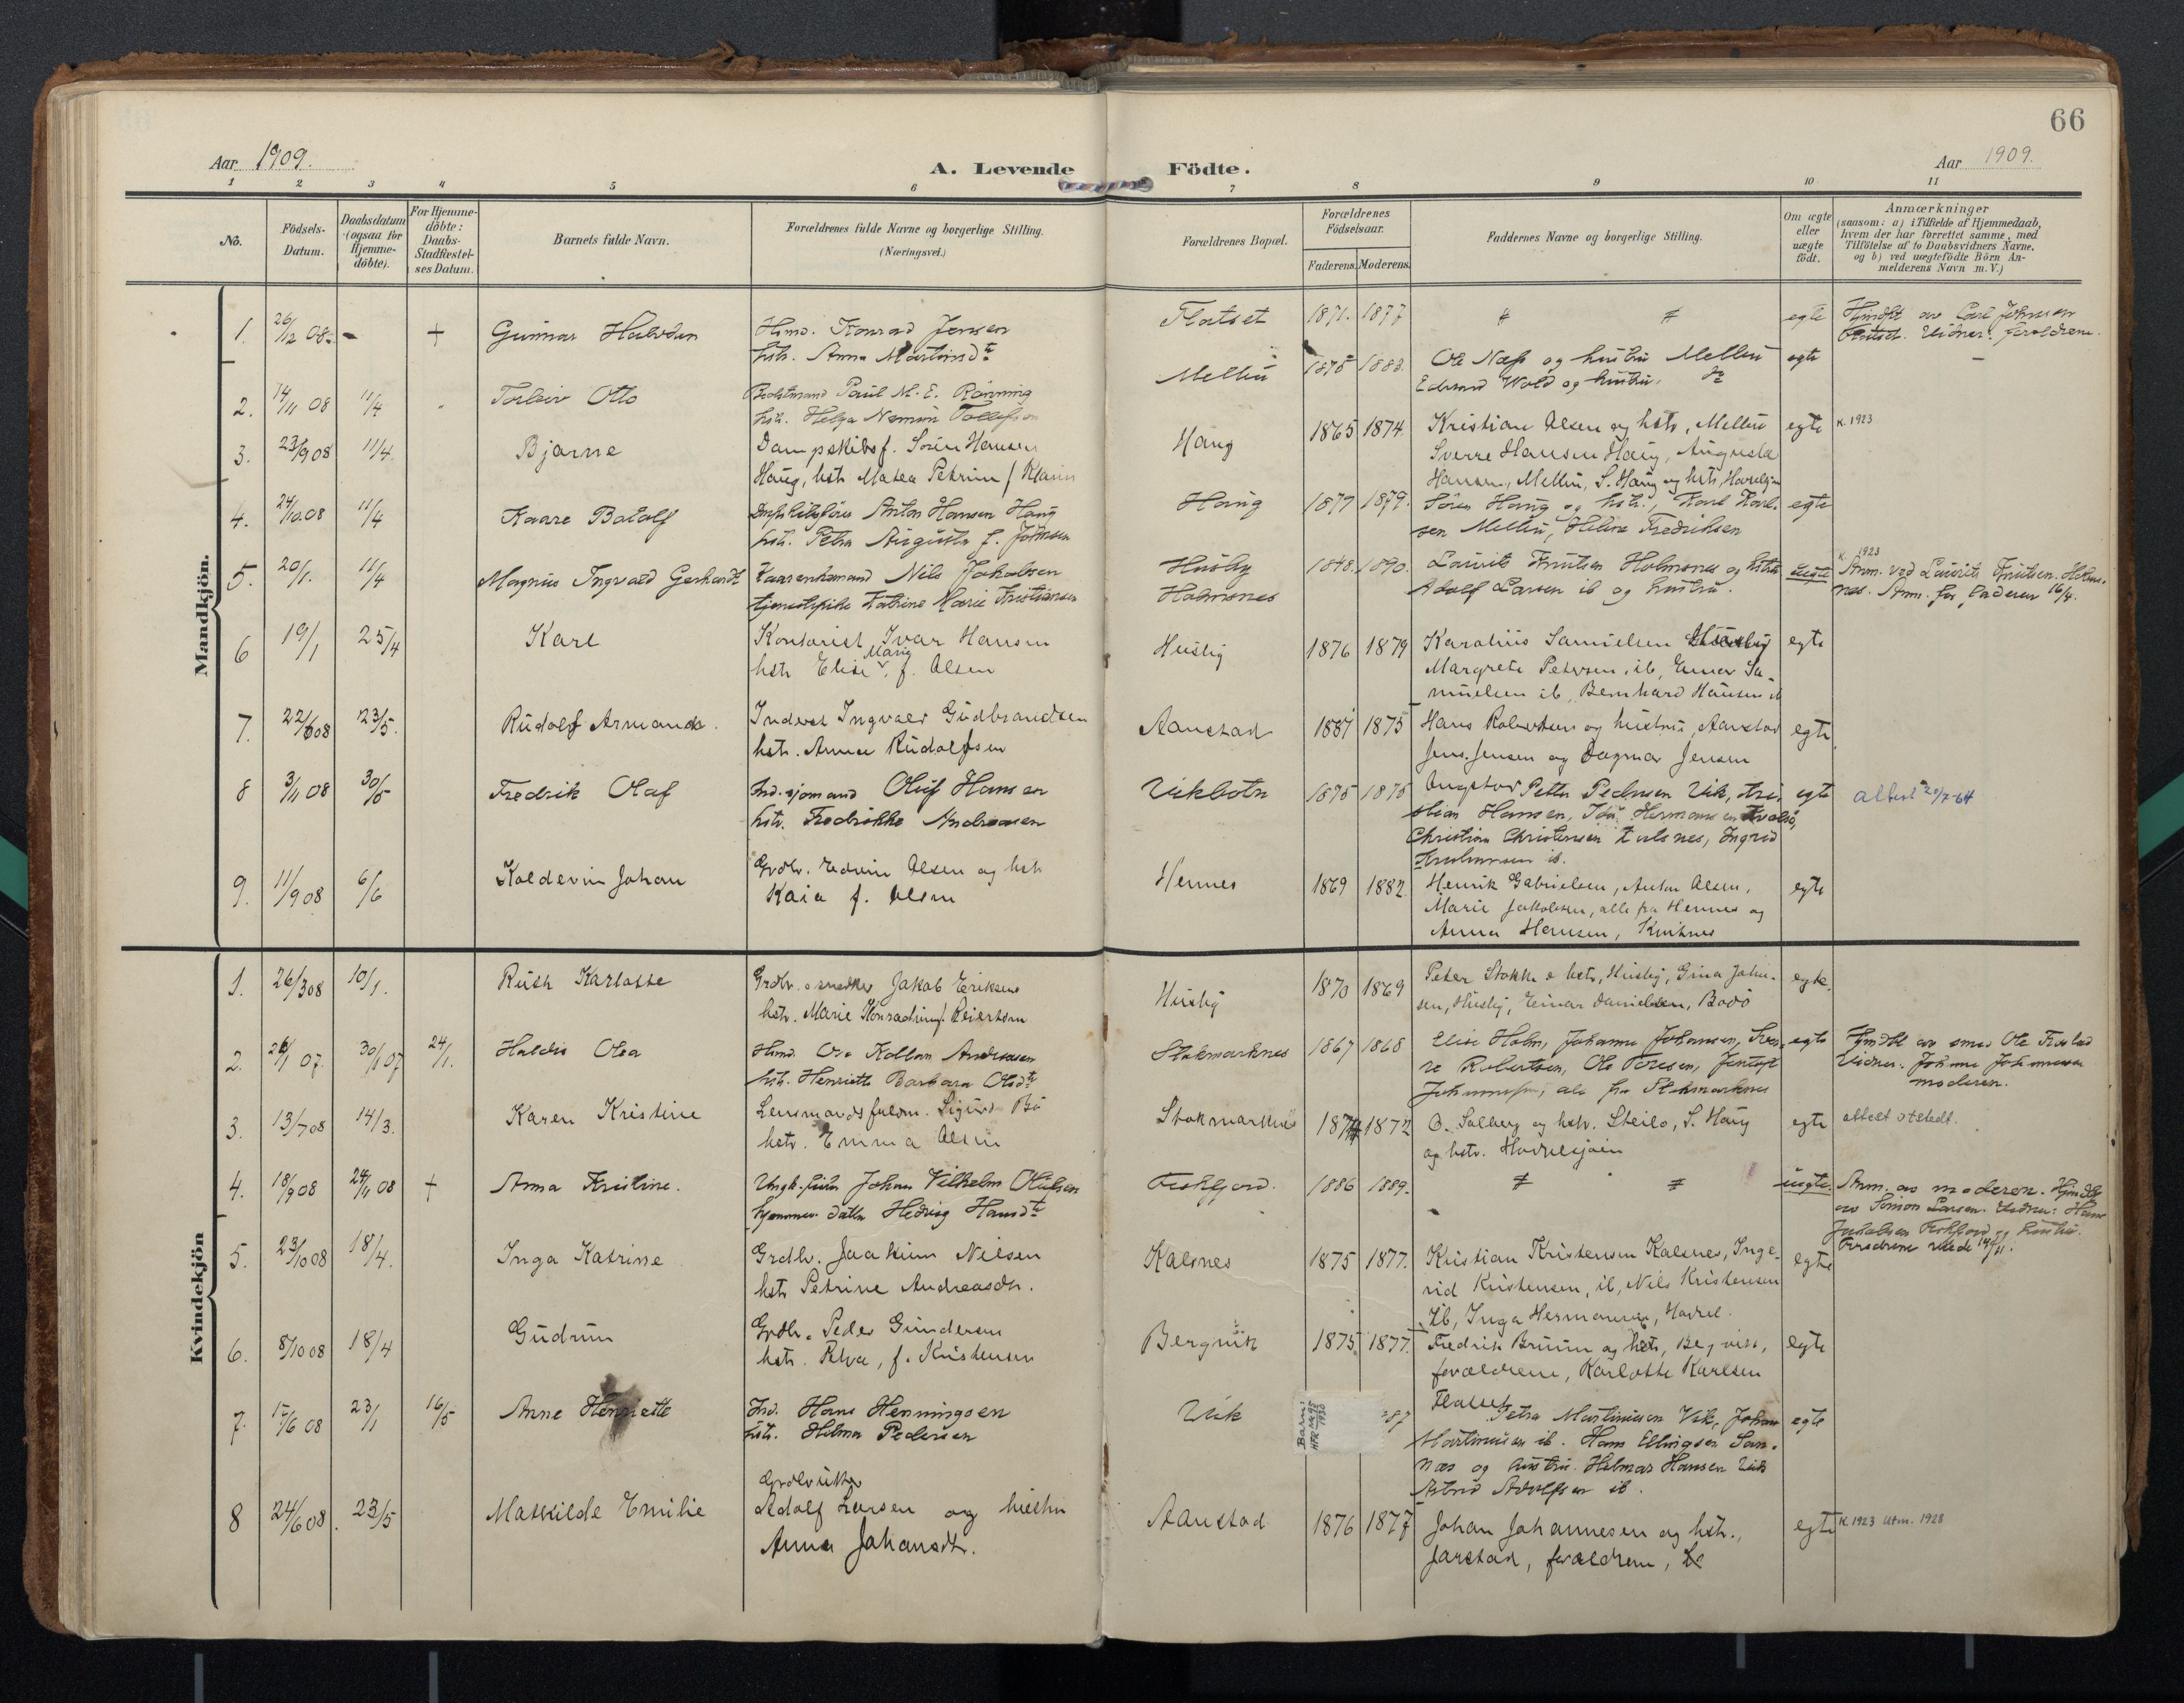 66
Aar 1909.
A. Levende Födte.
Aar 1909.
1 2 3 4 5 6 7 8 9 10 11
No.
Födsels-
Datum.
Daabsdatum
(ogsaa for
Hjemme-
döbte).
For Hjemme-
döbte:
Daabs-
Stadfæstel-
ses Datum.
Barnets fulde Navn.
Forældrenes fulde Navne og borgerlige Stilling.
(Næringsvei.)
Forældrenes Bopæl.
Forældrenes
Födselsaar.
Faderens. Moderens.
Faddernes Navne og borgerlige Stilling.
Om ægte
eller
uægte
födt.
Anmærkninger
(saasom: a) i Tilfælde af Hjemmedaab,
hvem der har forrettet samme, med
Tilföielse af to Daabsvidners Navne,
og b) ved uægtefödte Börn An-
melderens Navn m. V.)
Mandkjön.
1. 26/12 08. - + Gunnar Halvdan
Hmd. Konrad Jensen
hstr. Anna Martinsdtr
Flatset 1871. 1877 egte
Hjmdbt av Carl Johnsen
Flatset. Vidner: forældrene.
2. 14/11 08 11/4 Torleiv Otto
Paul M. E. Rönning
hstr. Helga Tollefsen
Melbu 1875 1883.
Ole Næss og hustru Melbu
Edvard Wold og hustru. egte
3. 23/9 08 11/4. Bjarne
Dampskibsf. Sören Hansen
Haug, hstr Matea Petrine f. Klaus
Haug 1865 1874.
Kristian Olsen og hstr, Melbu
Sverre Hansen Haug, Augusta
Hansen, Melbu, S. Haug og hstr, egte K. 1923
4. 24/10.08 11/4 Kaare Botolf
Anton Hansen Haug
hstr. Petra Augusta f. Johnsen
Haug 1877 1879.
Sören Haug og hstr, Karl Karl-
sen Melbu, Helene Fredriksen egte
5. 20/1. 11/4 Magnus Ingvald Gerhardt
Nils Jakobsen
tjenestepike Katrine Marie Kristiansen
Husby
Holmsnes
1848. 1890.
Laurits Knutsen Holmsnes og hstr
Adolf Larsen ib og hustru. uegte
K. 1923
Anm. ved Laurits Knutsen Holms-
nes. Anm. for faderen 16/4.
6 19/1 25/4 Karl
Kontorist Ivar Hansen
hstr Elise Marie f. Olsen
Husby 1876 1879
Karolius Samuelsen Husby
Margrete Petersen, ib, Einar Sa-
muelsen ib, Bernhard Hansen ib egte
7. 22/6 08 23/5. Rudolf Armand.
Inderst Ingvald Gudbrandsen
hstr. Anna Rudolfsen
Aanstad 1881 1875
Hans Robertsen og hustru, Aanstad
Jens Jensen og Dagmar Jensen egte
8 3/11 08 30/5 Fredrik Olaf
Ind. sjömand Oluf Hansen
hstr. Fredrikke Andreasen
Vikbotn 1875 1875
Petter Pedersen Vik, Kri-
stian Hansen, Ida Hermansen
Christian Christensen Kalsnes, Ingrid
ib. egte
attest 20/7-64
9. 11/9 08 6/6 Koldevin Johan
Grdbr. Edvin Olsen og hstr
Kaia f. Olsen
Hennes 1869 1882.
Henrik Gabrielsen, Anton Olsen,
Marie Jakobsen, alle fra Hennes og
Anna Hansen, egte
Kvindekjön
1. 26/3 08 10/1. Ruth Karlotte
Grdbr. o snedker Jakob Eriksen
hstr. Marie Konradine f. Reiersen
Husby 1870 1869
Peter Stokke o hstr, Husby, Gina Johan-
sen, Husby, Einar Danielsen, Bodö egte.
2. 26/1 07. 30/1 07 24/1. Haldis Olea
Hmd. Andreasen
hstr. Henriette Barbara Olsdtr
Stokmarknes 1867 1868
Elise Holm, Johanne Johansen,
Robertsen, Ole Toresen,
Johannesen, alle fra Stokmarknes egte
Hjmdbt av smed Ole
Vidner. Johanne Johannessen
moderen.
3. 13/7 08 14/3. Karen Kristine
Lensmandsfuldm. Sigurd Bö
hstr. Emma Olsen
Stokmarknes 1874 1872
O. Solberg og hstr. Steilo, S. Haug
og hstr. egte
attest utstedt.
4. 18/9 08 24/11 08 + Anna Kristine.
Ungk. fisker Johan Vilhelm Olufsen
hjemmev. datter Hedvig Hansdtr
Fiskfjord. 1886 1889. uegte.
Anm. av moderen. Hjmdbt
av Simon Larsen. Vidner: Hans
Jakobsen Fiskfjord og hustru.
14/11.
5. 23/10 08 18/4. Inga Katrine
Grdbr. Joakim Nilsen
hstr Petrine Andreasdtr.
Kalsnes 1875 1877.
Kristian Kristensen Kalsnes, Inge-
rid Kristensen, ib, Nils Kristensen
ib, Inga Hermansen, egte
6. 8/10 08 18/4 Gudrun
Grdbr. Peder Gundersen
hstr. Petra, f. Kristensen
Bergvik 1875. 1877.
Fredrik Bruun og hstr, Bergvik,
forældrene, Karlotte Karlsen
Flatset egte
7. 15/6 08 23/1 16/5 Anne Henriette
Ind. Hans Henningsen
hstr. Hilma Pedersen
Vik
Petra Martinussen Vik, Johan
Martinussen ib. Hans Ellingsen San-
nes og hustru. Hilmar Hansen Vik
Astrid Adolfsen ib. egte
8 24/6 08. 23/5 Mathilde Emilie
Grdbruker
Adolf Larsen og hustru
Anna Johansdtr.
Aanstad 1876 1877
Johan Johannesen og hstr.,
Jarstad, forældrene, egte
K 1923 Utm. 1928